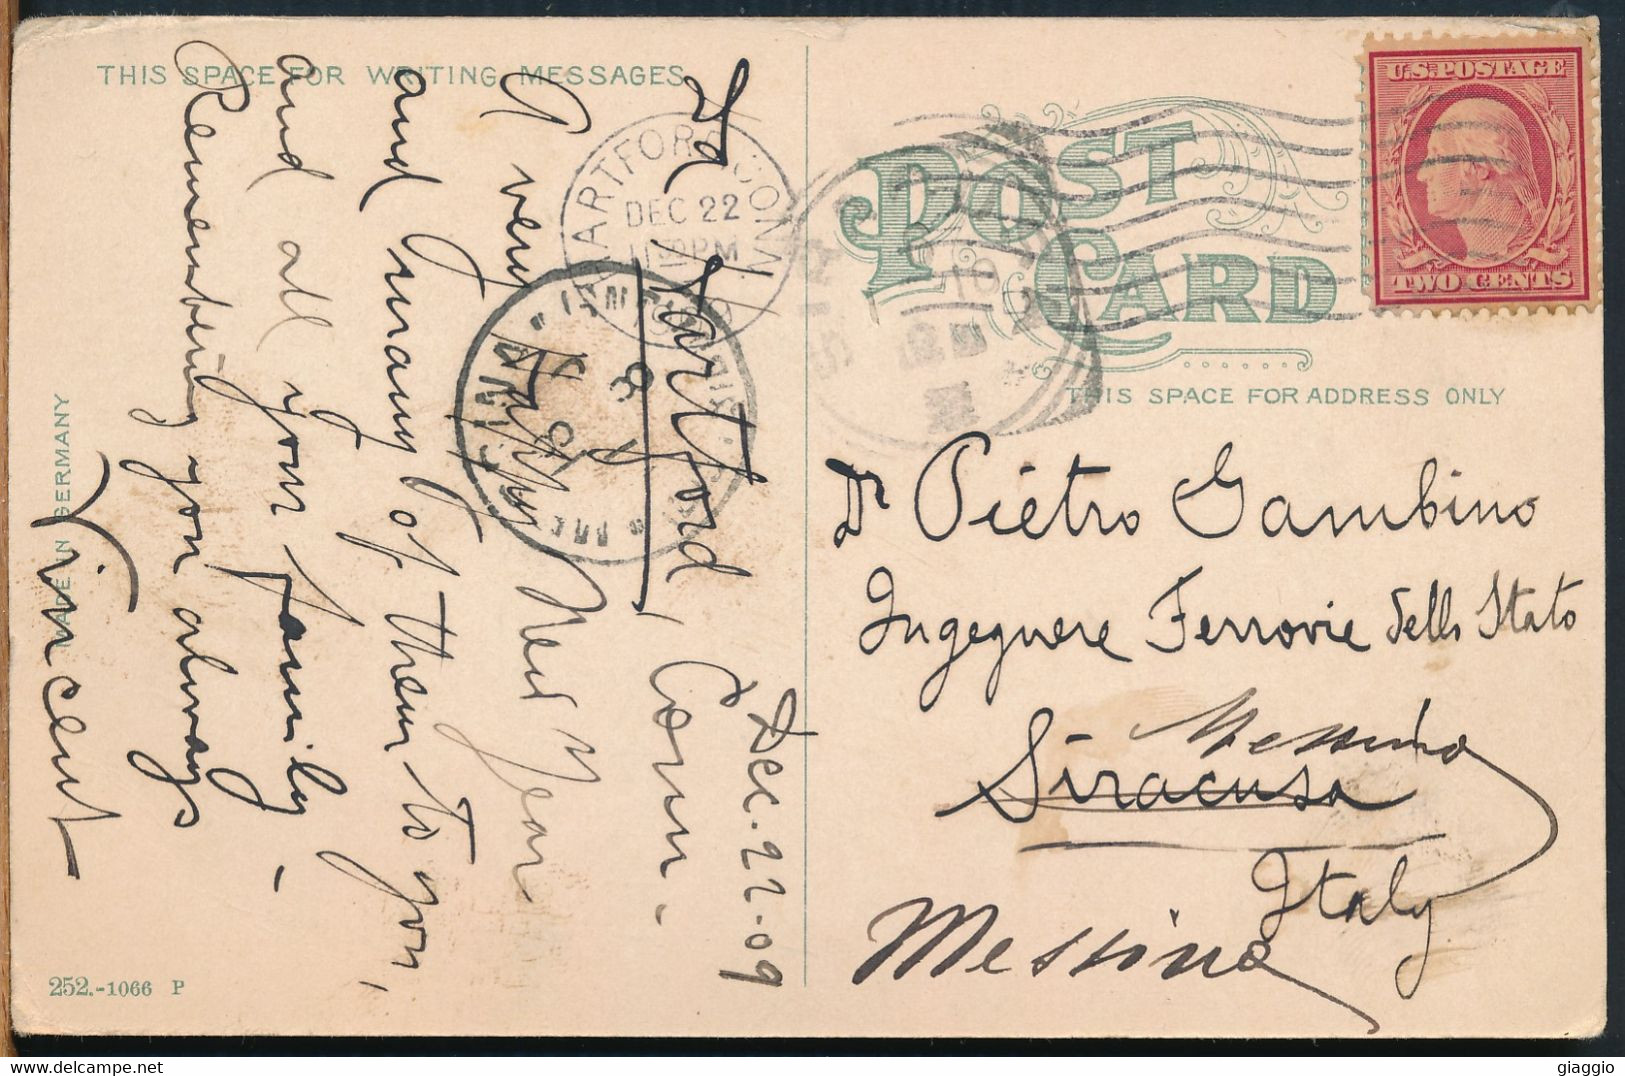 THIS SPACE FOR WRITING MESSAGES
Hartford, Conn.
Dec. 22-09
A very Happy New Year
and many of them to you,
and all your family -
Remembering you always
Vincent
MADE IN GERMANY
252.-1066 P
HARTFORD CONN.
DEC 22
PM
POST CARD
THIS SPACE FOR ADDRESS ONLY
U.S. POSTAGE
TWO CENTS
Dr Pietro Gambino
Ingegnere Ferrovie dello Stato
Messina
Siracusa
Italy
Messina